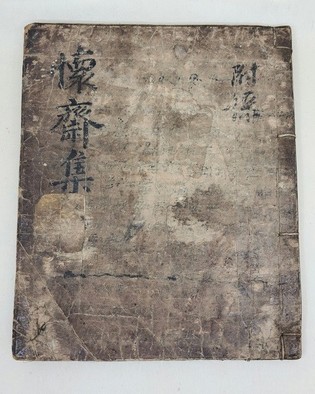 附錄
懷齋集